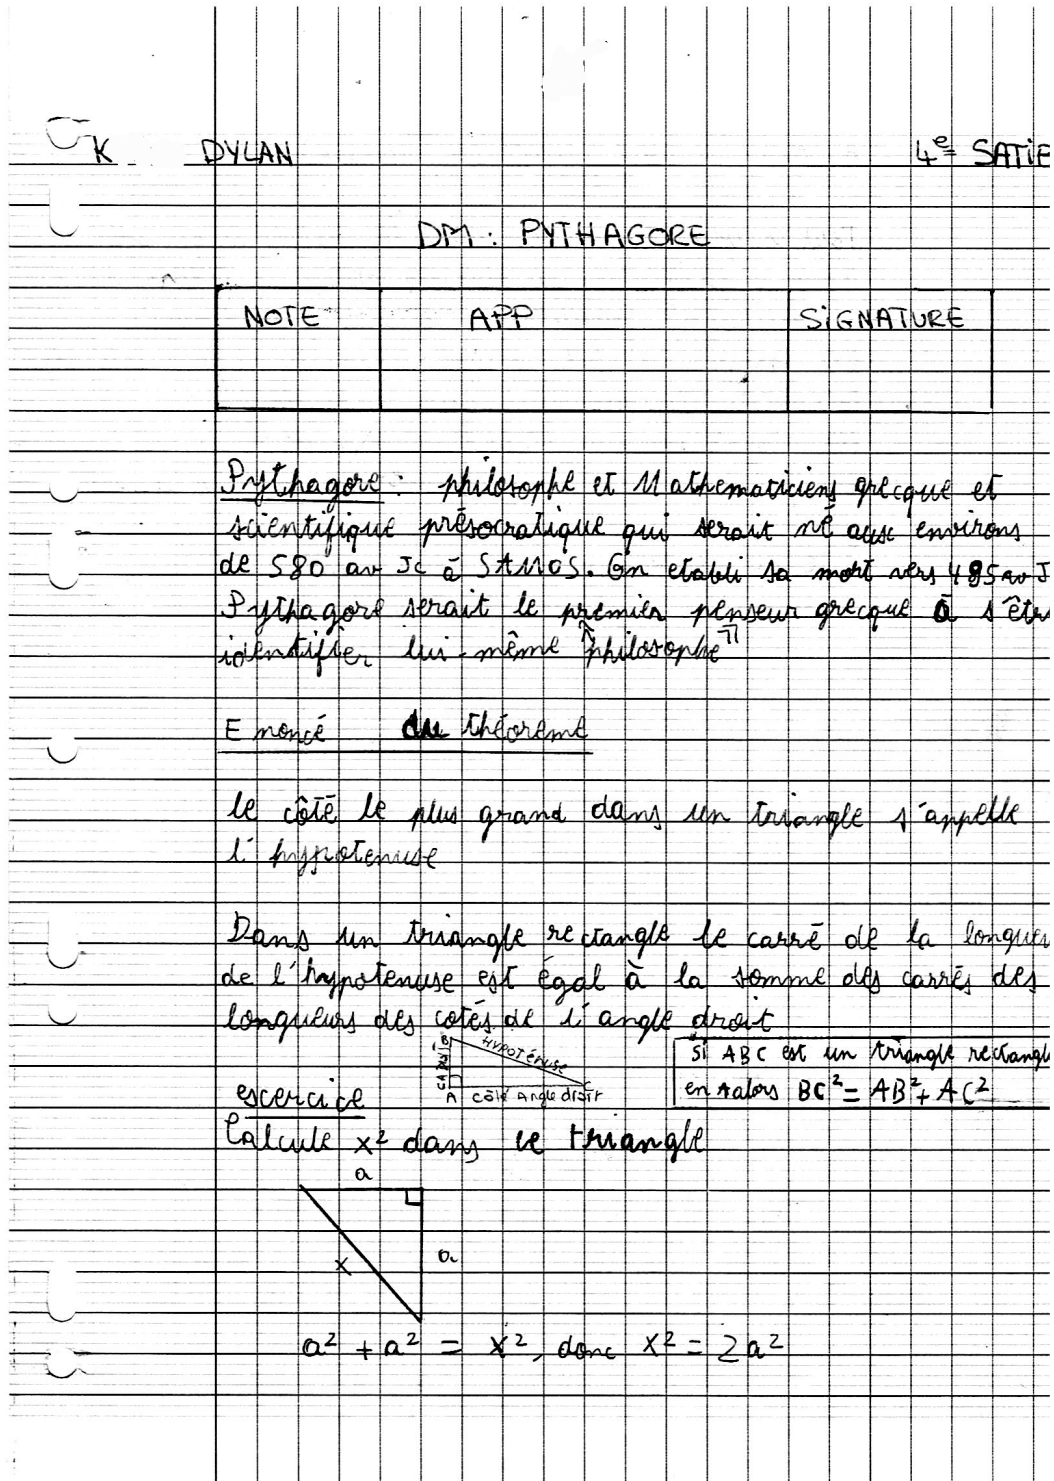 K DYLAN 4e SATIE
DM : PYTHAGORE
NOTE APP SIGNATURE
Pythagore : philosophe et Mathematiciens grecque et
scientifique présocratique qui serait né aux environs
de 580 av Jc à SAMOS. On etabli sa mort vers 485 av J
Pythagore serait le premier penseur grecque à s'être
identifier lui-même "philosophe"
Enoncé du théoreme
le côté le plus grand dans un triangle s'appelle
l'hypotenuse
Dans un triangle rectangle le carré de la longueu
de l'hypotenuse est égal à la somme des carrés des
longueurs des cotés de l'angle droit
B HYPOTÉNUSE C
A côté Angle droit
Si ABC est un triangle rectangl
en A alors BC² = AB² + AC²
escercice
Calcule x² dans ce triangle
a
x a
a² + a² = x², donc x² = 2a²